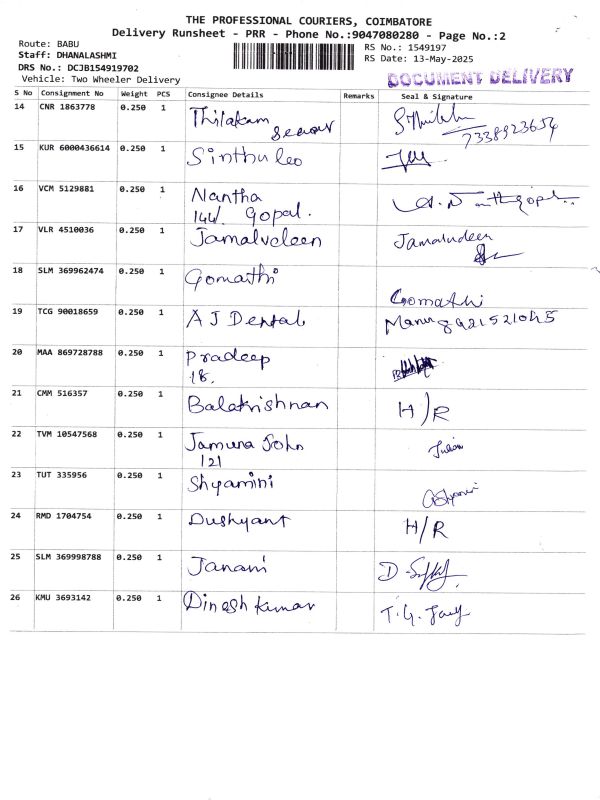 THE PROFESSIONAL COURIERS, COIMBATORE
Delivery Runsheet - PRR - Phone No.:9047080280 - Page No.:2
Route: BABU
Staff: DHANALASHMI
DRS No.: DCJB154919702
Vehicle: Two Wheeler Delivery
RS No.: 1549197
RS Date: 13-May-2025
DOCUMENT DELIVERY
S No Consignment No Weight PCS Consignee Details Remarks Seal & Signature
14 CNR 1863778 0.250 1 Thilakam 7338923654
15 KUR 6000436614 0.250 1 Sinthu leo
16 VCM 5129881 0.250 1 Nantha
144/. Gopal.
17 VLR 4510036 0.250 1 Jamaludeen Jamaludeen
18 SLM 369962474 0.250 1 Gomathi Gomathi
19 TCG 90018659 0.250 1 A J Dental
20 MAA 869728788 0.250 1 Pradeep
18.
21 CMM 516357 0.250 1 Balakrishnan H/R
22 TVM 10547568 0.250 1 Jamuna John
121
23 TUT 335956 0.250 1 Shyamini
24 RMD 1704754 0.250 1 Dushyant H/R
25 SLM 369998788 0.250 1 Janani
26 KMU 3693142 0.250 1 Dinesh Kumar